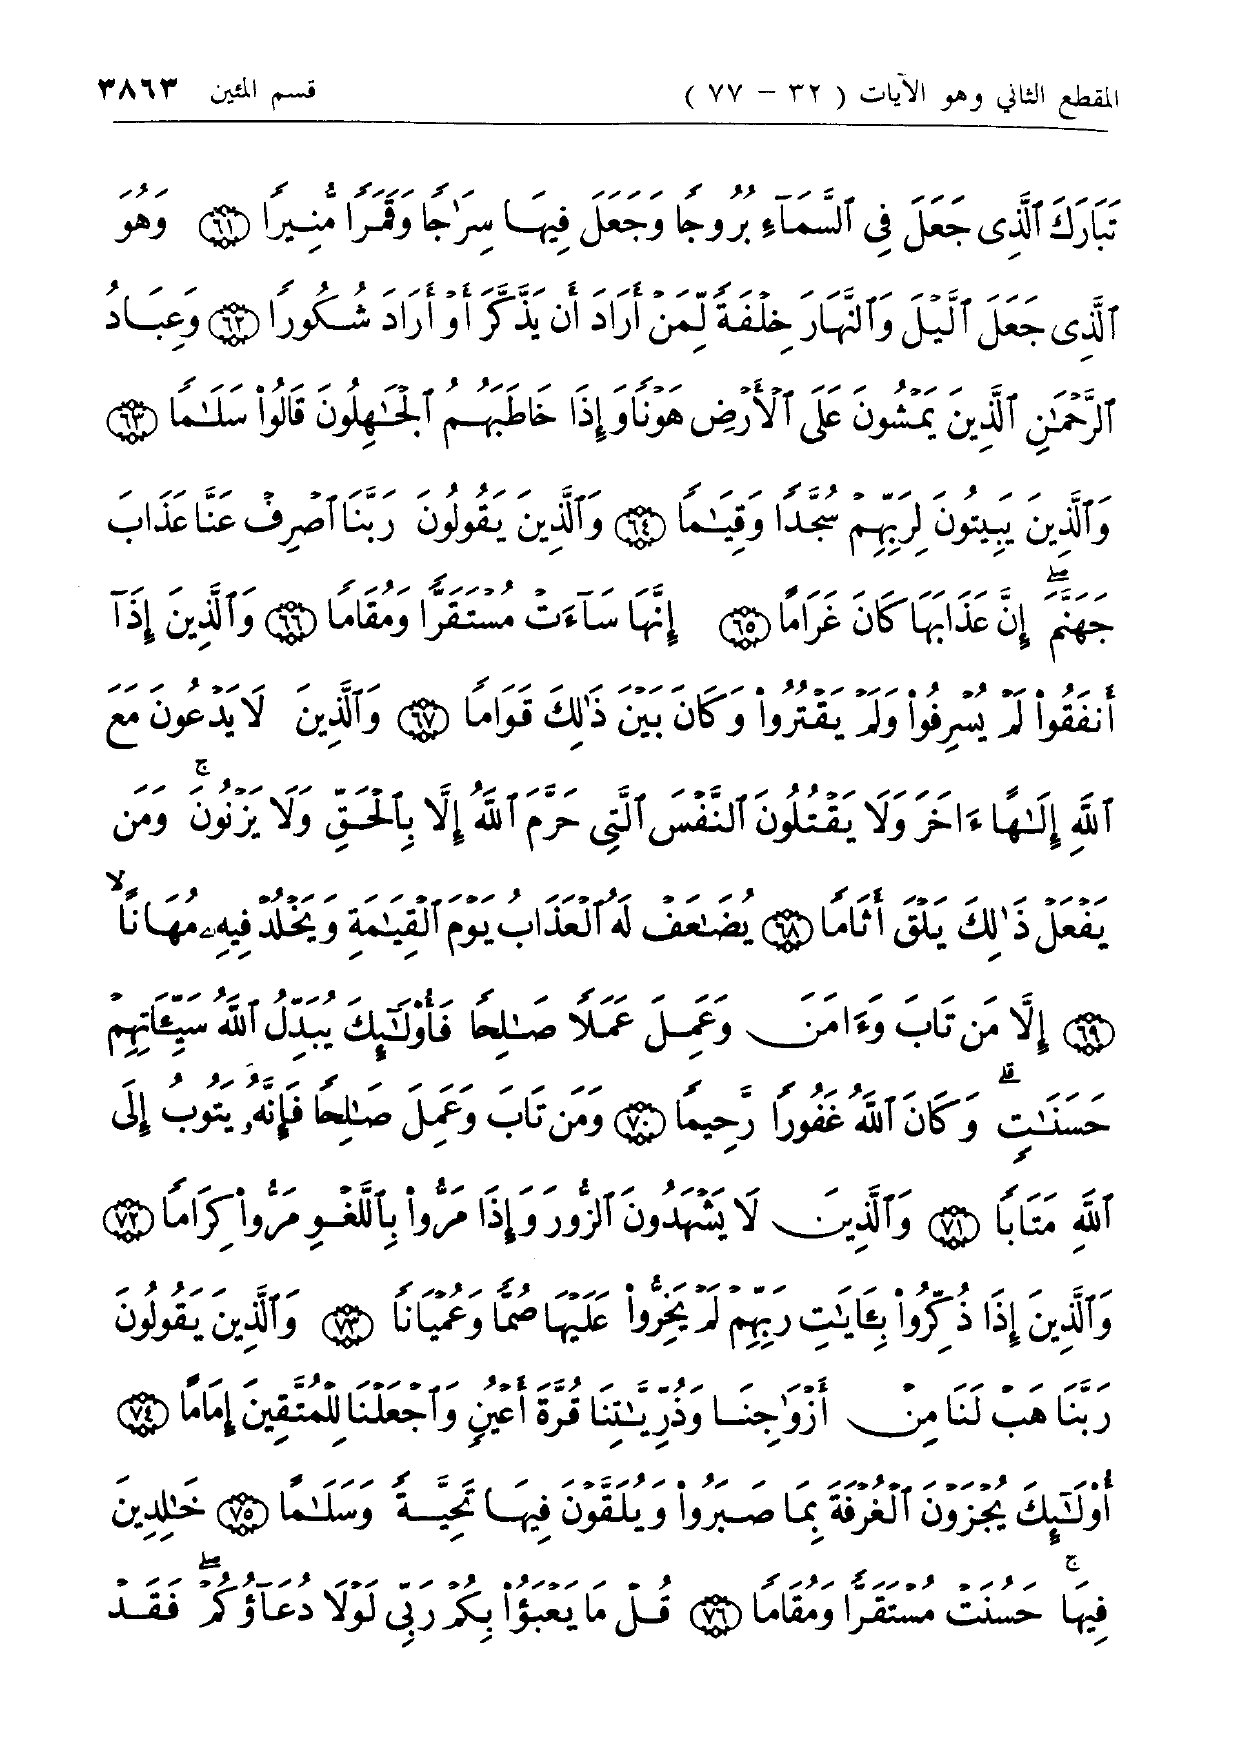 المقطع الثاني وهو الآيات ( ٣٢ – ٧٧ ) قسم المئين ٣٨٦٣
تَبَارَكَ ٱلَّذِى جَعَلَ فِى ٱلسَّمَآءِ بُرُوجًا وَجَعَلَ فِيهَا سِرَٰجًا وَقَمَرًا مُّنِيرًا ﴿٦١﴾ وَهُوَ
ٱلَّذِى جَعَلَ ٱلَّيْلَ وَٱلنَّهَارَ خِلْفَةً لِّمَنْ أَرَادَ أَن يَذَّكَّرَ أَوْ أَرَادَ شُكُورًا ﴿٦٢﴾ وَعِبَادُ
ٱلرَّحْمَٰنِ ٱلَّذِينَ يَمْشُونَ عَلَى ٱلْأَرْضِ هَوْنًا وَإِذَا خَاطَبَهُمُ ٱلْجَٰهِلُونَ قَالُوا۟ سَلَٰمًا ﴿٦٣﴾
وَٱلَّذِينَ يَبِيتُونَ لِرَبِّهِمْ سُجَّدًا وَقِيَٰمًا ﴿٦٤﴾ وَٱلَّذِينَ يَقُولُونَ رَبَّنَا ٱصْرِفْ عَنَّا عَذَابَ
جَهَنَّمَ ۖ إِنَّ عَذَابَهَا كَانَ غَرَامًا ﴿٦٥﴾ إِنَّهَا سَآءَتْ مُسْتَقَرًّا وَمُقَامًا ﴿٦٦﴾ وَٱلَّذِينَ إِذَآ
أَنفَقُوا۟ لَمْ يُسْرِفُوا۟ وَلَمْ يَقْتُرُوا۟ وَكَانَ بَيْنَ ذَٰلِكَ قَوَامًا ﴿٦٧﴾ وَٱلَّذِينَ لَا يَدْعُونَ مَعَ
ٱللَّهِ إِلَٰهًا ءَاخَرَ وَلَا يَقْتُلُونَ ٱلنَّفْسَ ٱلَّتِى حَرَّمَ ٱللَّهُ إِلَّا بِٱلْحَقِّ وَلَا يَزْنُونَ ۚ وَمَن
يَفْعَلْ ذَٰلِكَ يَلْقَ أَثَامًا ﴿٦٨﴾ يُضَٰعَفْ لَهُ ٱلْعَذَابُ يَوْمَ ٱلْقِيَٰمَةِ وَيَخْلُدْ فِيهِۦ مُهَانًا ۙ
﴿٦٩﴾ إِلَّا مَن تَابَ وَءَامَنَ وَعَمِلَ عَمَلًا صَٰلِحًا فَأُو۟لَٰٓئِكَ يُبَدِّلُ ٱللَّهُ سَيِّـَٔاتِهِمْ
حَسَنَٰتٍ ۗ وَكَانَ ٱللَّهُ غَفُورًا رَّحِيمًا ﴿٧٠﴾ وَمَن تَابَ وَعَمِلَ صَٰلِحًا فَإِنَّهُۥ يَتُوبُ إِلَى
ٱللَّهِ مَتَابًا ﴿٧١﴾ وَٱلَّذِينَ لَا يَشْهَدُونَ ٱلزُّورَ وَإِذَا مَرُّوا۟ بِٱللَّغْوِ مَرُّوا۟ كِرَامًا ﴿٧٢﴾
وَٱلَّذِينَ إِذَا ذُكِّرُوا۟ بِـَٔايَٰتِ رَبِّهِمْ لَمْ يَخِرُّوا۟ عَلَيْهَا صُمًّا وَعُمْيَانًا ﴿٧٣﴾ وَٱلَّذِينَ يَقُولُونَ
رَبَّنَا هَبْ لَنَا مِنْ أَزْوَٰجِنَا وَذُرِّيَّٰتِنَا قُرَّةَ أَعْيُنٍ وَٱجْعَلْنَا لِلْمُتَّقِينَ إِمَامًا ﴿٧٤﴾
أُو۟لَٰٓئِكَ يُجْزَوْنَ ٱلْغُرْفَةَ بِمَا صَبَرُوا۟ وَيُلَقَّوْنَ فِيهَا تَحِيَّةً وَسَلَٰمًا ﴿٧٥﴾ خَٰلِدِينَ
فِيهَا ۚ حَسُنَتْ مُسْتَقَرًّا وَمُقَامًا ﴿٧٦﴾ قُلْ مَا يَعْبَؤُا۟ بِكُمْ رَبِّى لَوْلَا دُعَآؤُكُمْ ۖ فَقَدْ